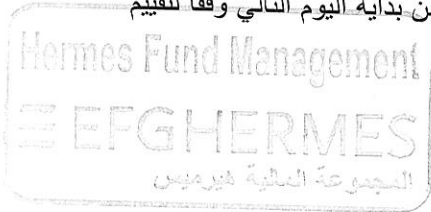 ن بداية اليوم التالي وفقا لتقييم
Hermes Fund Management
EFGHERMES
المجموعة المالية هيرميس